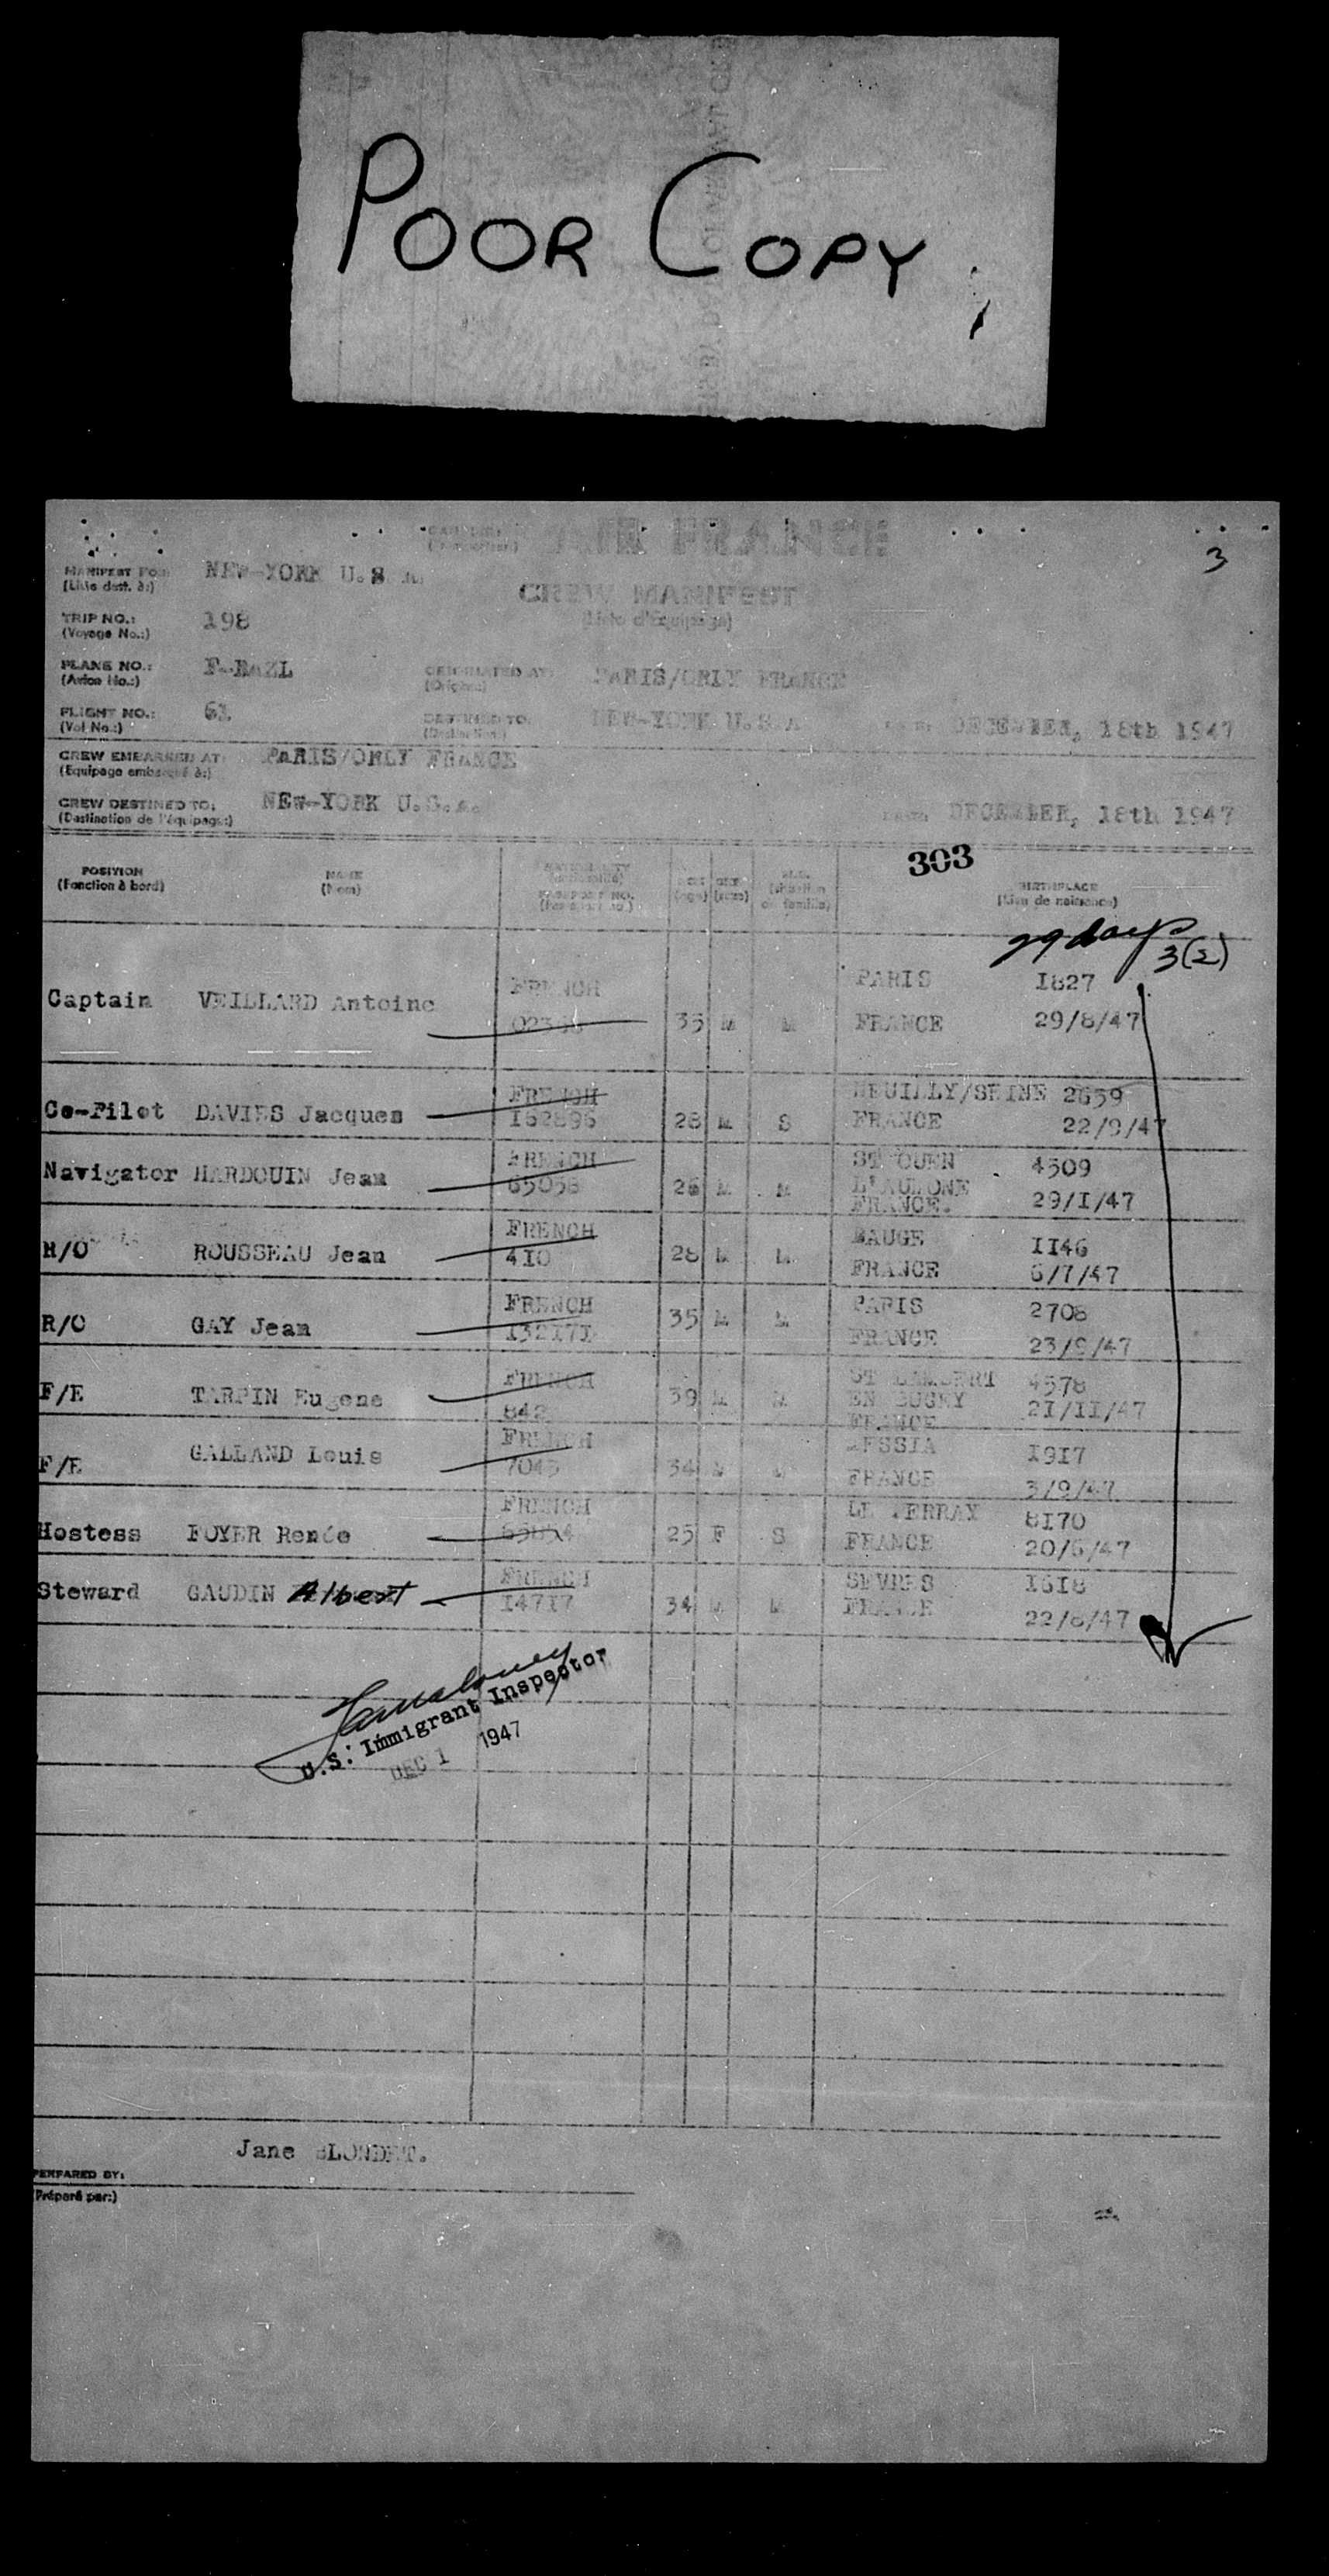 POOR COPY
AIR FRANCE
3
MANIFEST FOR: NEW-YORK U.S.A.
(Liste dest. à:)
CREW MANIFEST
(Liste d'Equipage)
TRIP NO.: 198
(Voyage No.:)
PLANE NO.:
(Avion No.:)
ORIGINATED AT: PARIS/ORLY FRANCE
(Origine:)
FLIGHT NO.: 61
(Vol No.:)
DESTINED TO: NEW-YORK U.S.A. DECEMBER, 18th 1947
CREW EMBARKED AT: PARIS/ORLY FRANCE
(Equipage embarqué à:)
CREW DESTINED TO: NEW-YORK U.S.A. DECEMBER, 18th 1947
(Destination de l'équipage:)
303
POSITION NAME NATIONALITY BIRTHPLACE
(Fonction à bord) (Nom) PASSPORT NO. (Lieu de naissance)
29 days
3(2)
Captain VEILLARD Antoine FRENCH 35 M M PARIS 1827
FRANCE 29/8/47
Co-Pilot DAVIES Jacques FRENCH 162896 28 M S NEUILLY/SEINE 2659
FRANCE 22/9/47
Navigator HARDOUIN Jean FRENCH 65058 26 M M ST OUEN 4509
L'AUMONE
FRANCE. 29/I/47
R/O ROUSSEAU Jean FRENCH 410 28 M M BAUGE 1146
FRANCE 6/7/47
R/O GAY Jean FRENCH 132171 35 M M PARIS 2708
FRANCE 23/9/47
F/E TARPIN Eugene FRENCH 842 39 M M ST LAMBERT 4578
EN BUGEY 21/11/47
FRANCE
F/E GALLAND Louis FRENCH 7043 34 M M MESSIA 1917
FRANCE 3/9/47
Hostess FOYER Renée FRENCH 25 F S LE PERRAY 8170
FRANCE 20/6/47
Steward GAUDIN Albert FRENCH 14717 34 M M SEVRES 1618
FRANCE 22/8/47
U.S. Immigrant Inspector
DEC 1 1947
Jane BLONDET.
PERPARED BY:
(Préparé par:)